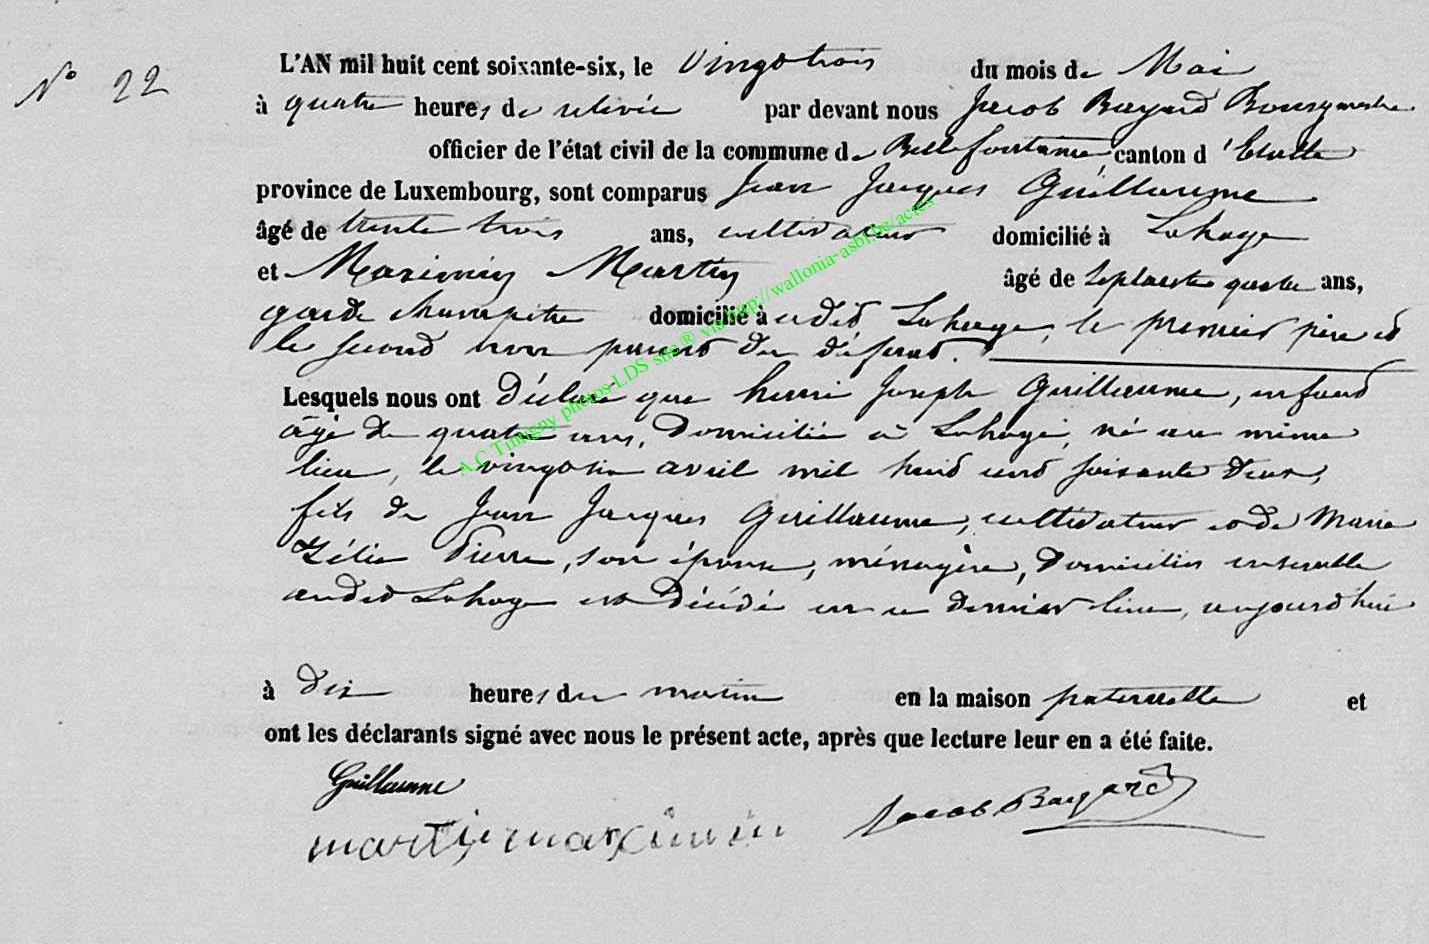 N° 22
L'AN mil huit cent soixante-six, le vingt trois du mois de Mai
à quatre heures de relevée par devant nous Jacob Bayard Bourgmestre
officier de l'état civil de la commune de Bellefontaine canton d'Etalle
province de Luxembourg, sont comparus Jean Jacques Guillaume
âgé de trente trois ans, cultivateur domicilié à Lahage
et Maximin Martin âgé de septante quatre ans,
garde champêtre domicilié à audit Lahage, le premier père et
le second non parent du défunt.
Lesquels nous ont déclaré que henri Joseph Guillaume, enfant
âgé de quatre ans, domicilié à Lahage, né au même
lieu, le vingt six avril mil huit cent soixante deux,
fils de Jean Jacques Guillaume, cultivateur et de Marie
Zélie Pierre, son épouse, ménagère, domiciliés ensemble
audit Lahage est décédé en ce dernier lieu, aujourd'hui
à dix heures du matin en la maison paternelle et
ont les déclarants signé avec nous le présent acte, après que lecture leur en a été faite.
Guillaume
martin maximin
Jacob Bayard
A.C Tintigny photos-LDS site ® via http://wallonia-asbl.be/actes